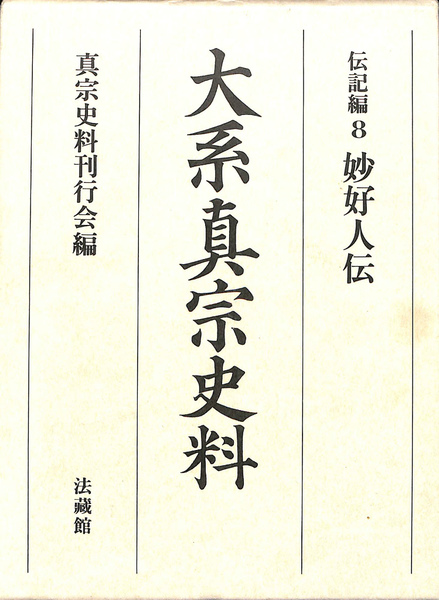 伝記編 8 妙好人伝
大系真宗史料
真宗史料刊行会編
法藏館